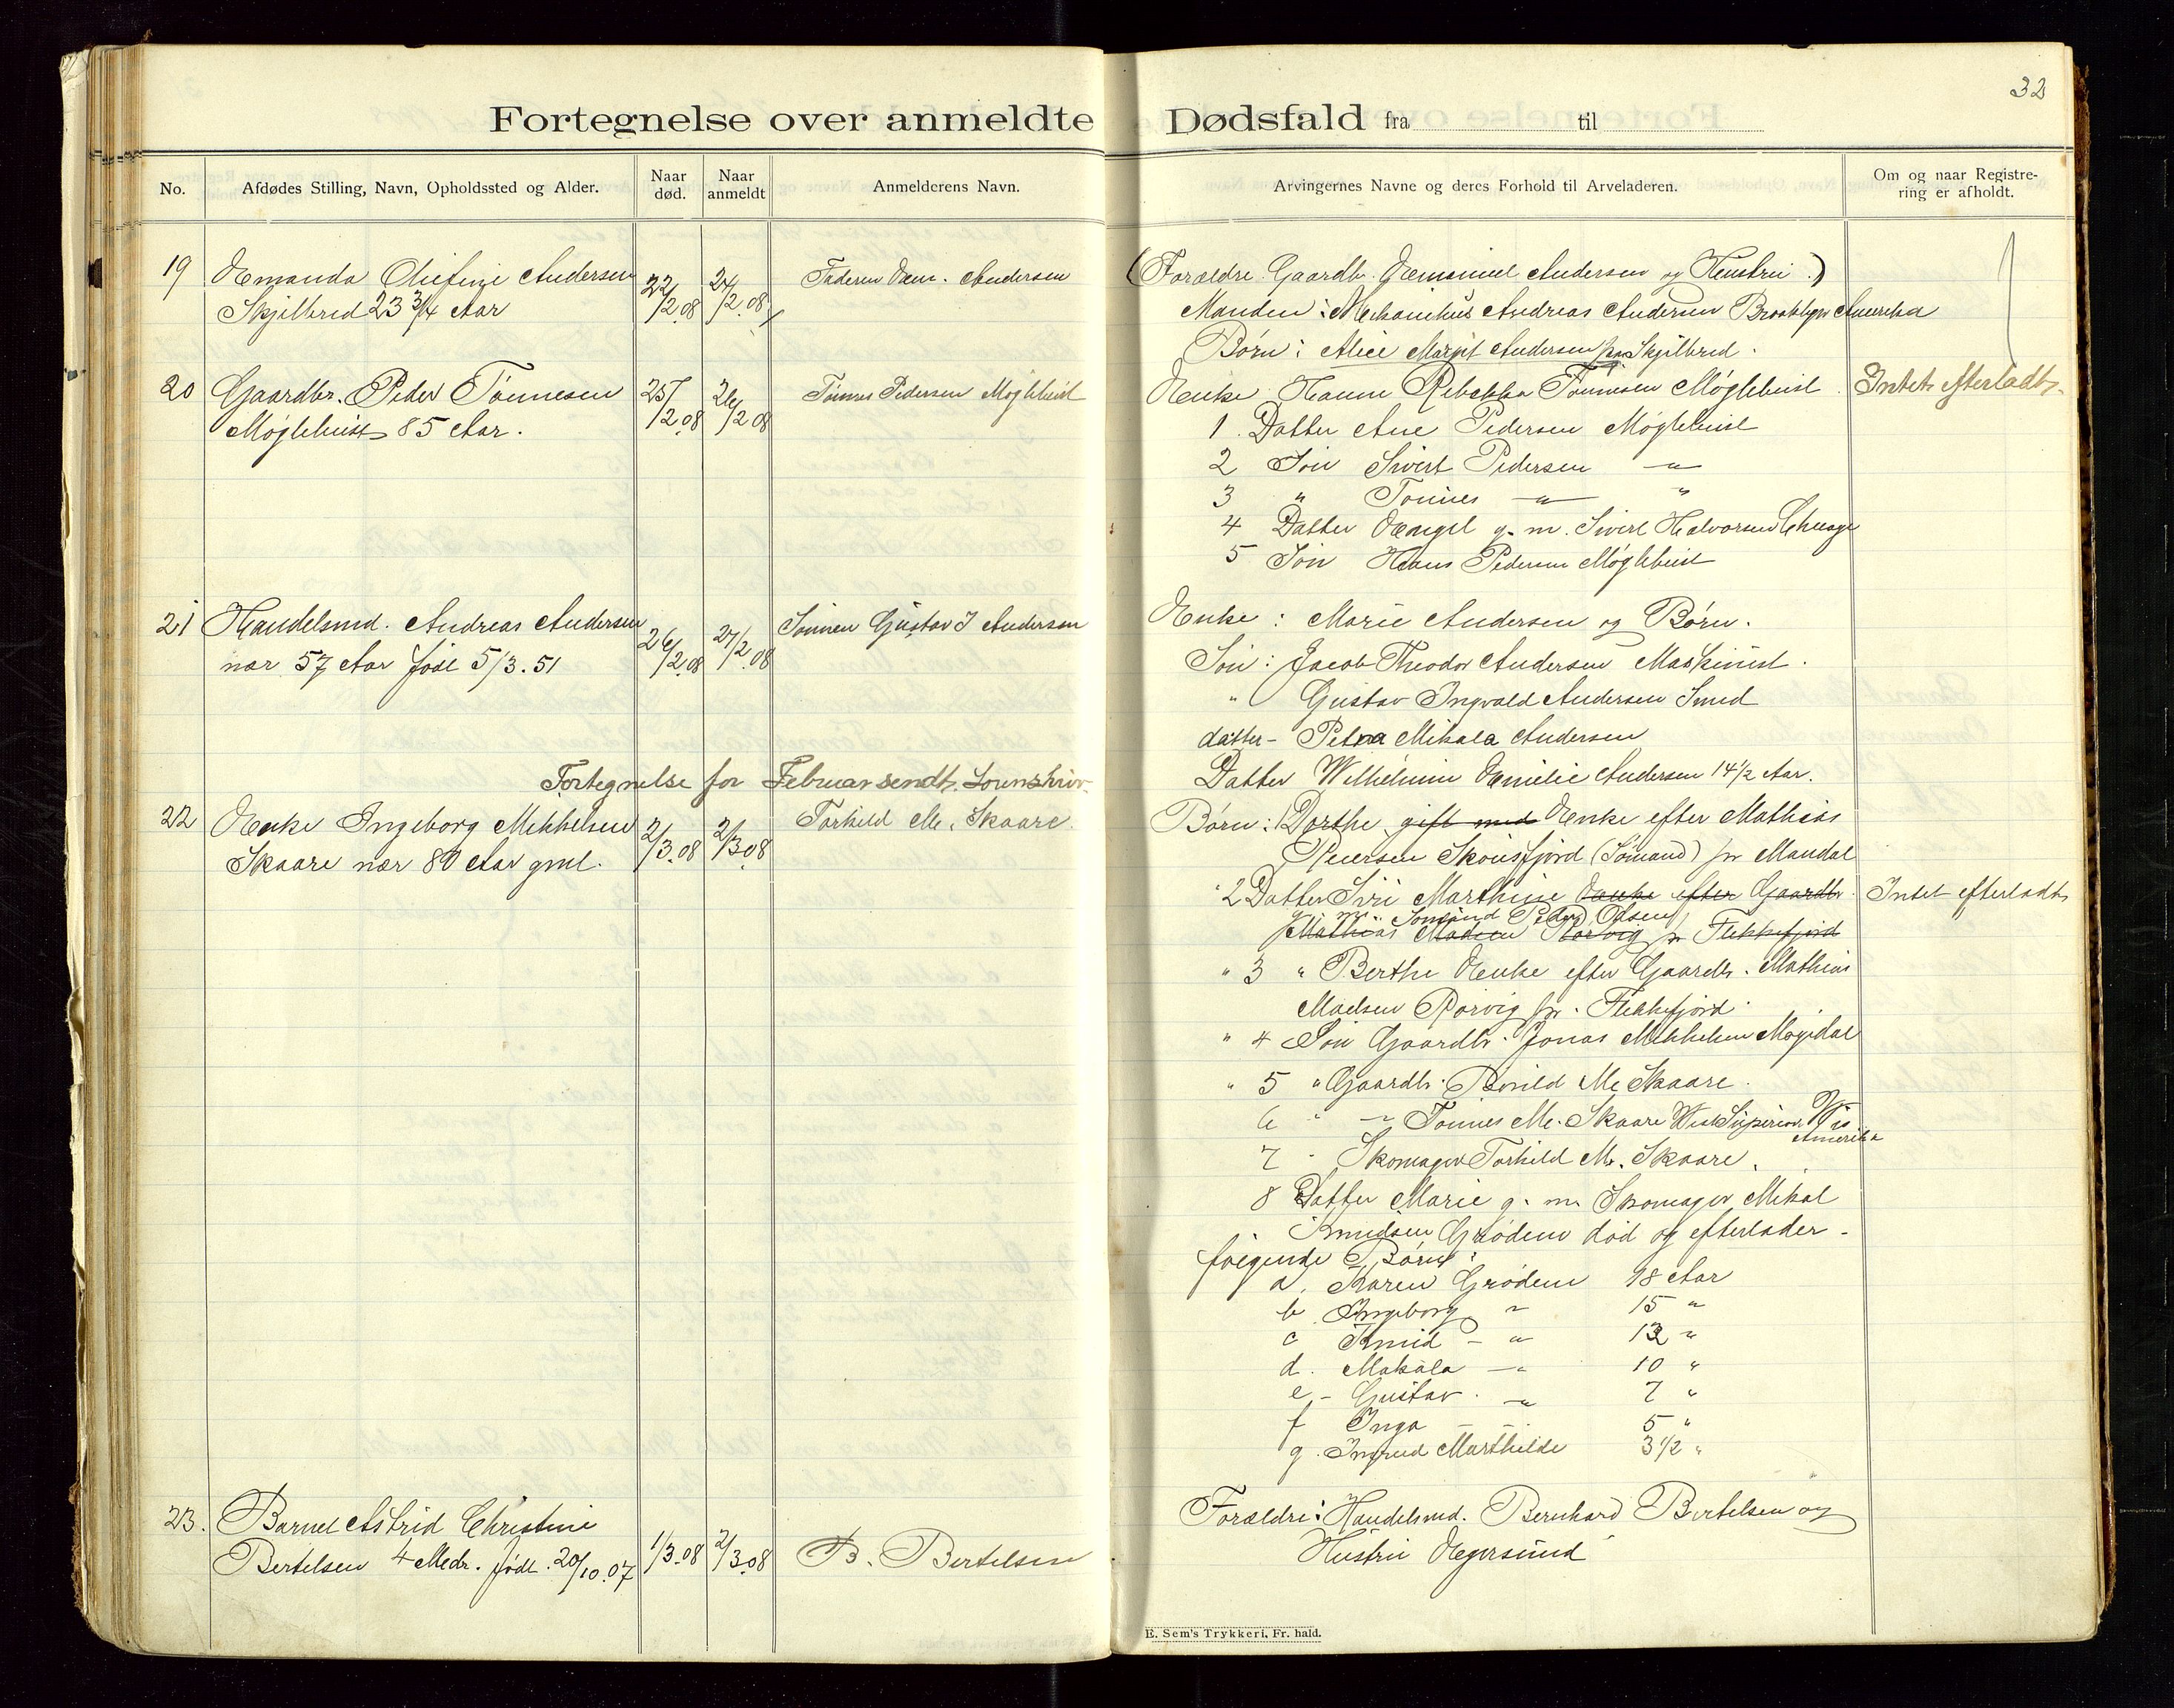 32
Fortegnelse over anmeldte Dødsfald fra til
No.
Afdødes Stilling, Navn, Opholdssted og Alder.
Naar død.
Naar anmeldt
Anmelderens Navn.
Arvingernes Navne og deres Forhold til Arveladeren.
Om og naar Registre-
ring er afholdt.
19 Emanda Andersen 22/2.08 24/2.08 Faderen Em. Andersen
Skjilbred 23 3/4 Aar
(Forældre Gaardbr. Emanuel Andersen og Hustru.)
Manden: Mekanikus Andreas Andersen Brooklyn Amerika
Børn: Alice Margit Andersen Skjilbred.
20 Gaardbr. Peder Tønnesen 25/2.08 26/2 08 Tønnes Pedersen Møglehust
Møglehust 85 Aar.
Enke Hanne Rebekka Tønnesen Møglehust. Intet efterladt.
1. Datter Ane Pedersen Møglehust
2 Søn Sivert Pedersen — " —
3 " Tønnes — " — "
4 Datter Engel g. m. Sivert Halvorsen
5 Søn Hans Pedersen Møglehust
21 Handelsmd. Andreas Andersen 26/2.08 27/2.08 Sønnen Gustav I Andersen
nær 57 Aar født 5/3.51
Enke: Marie Andersen og Børn.
Søn: Jacob Theodor Andersen Maskinist.
" Gustav Ingvald Andersen Smed
datter - Petra Mikala Andersen
Datter Wilhelmine Emilie Andersen 14 1/2 Aar.
Fortegnelse for Februar sendt Sorenskriv.
22 Enke Ingeborg Mikkelsen 2/3.08 2/3 08 Torkild M. Skaare.
Skaare nær 80 Aar gml.
Børn: 1 Dorthe gift med Enke efter Mathias
Skonsfjord (Sømand) pr Mandal
" 2 Datter Siri Marthine Enke efter Gaardbr. Intet efterladt
g. m. Sømand Peder Olsen
Mathias Madsen Rørvig pr Flekkefjord
" 3 " Berthe Enke efter Gaardb. Mathias
Madsen Rørvig pr. Flekkefjord
" 4 Søn Gaardbr. Jonas Mikkelsen Møgedal
" 5 " Gaardb. M. Skaare.
6 " — " Tønnes M. Skaare West Superior, Wis
Amerika
7 " Skomager Torkild M. Skaare.
8 Datter Marie g. m. Skomager Mikal
Knudsen Grødem død og efterlader -
følgende Børn:
a. Karen Grødem 18 Aar
b Ingeborg " 15 "
c Knud - " 13 "
d. Makala — " 10 "
e - Gustav. — " 7 "
f Inga — - 5 "
g. Ingrid Marthilde 3 1/2 "
23. Barnet Astrid Christine
Bertelsen 4 Mdr. født 20/10.07 1/3.08 2/3.08 B. Bertelsen
Forældre: Handelsmd. Bernhard Bertelsen og
Hustru Egersund
E. Sem's Trykkeri, Fr. hald.